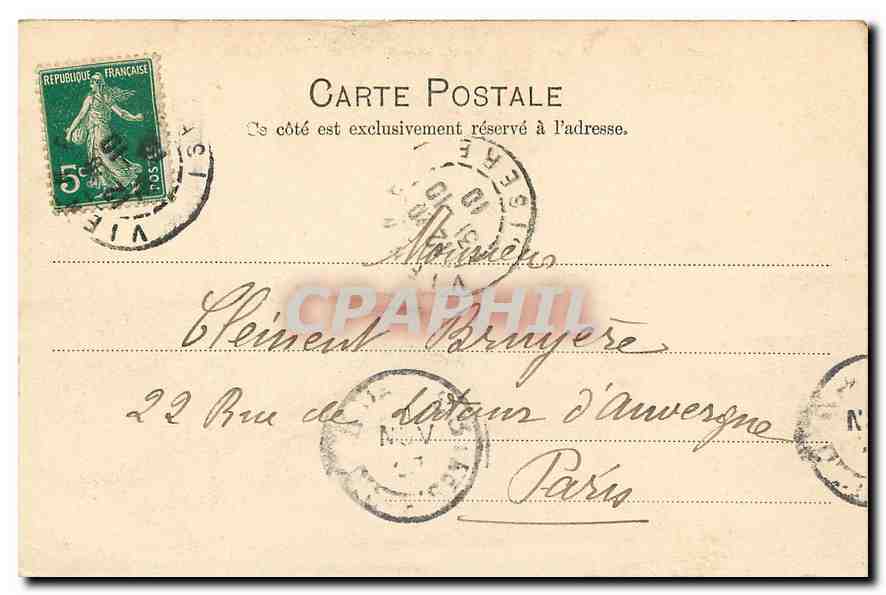 RÉPUBLIQUE FRANÇAISE
5c
POSTES
CARTE POSTALE
Ce côté est exclusivement réservé à l'adresse.
ISERE
31
10
Monsieur
CPAPHIL
Clément Bruyère
22 Rue de Latour d'Auvergne
NOV
Paris